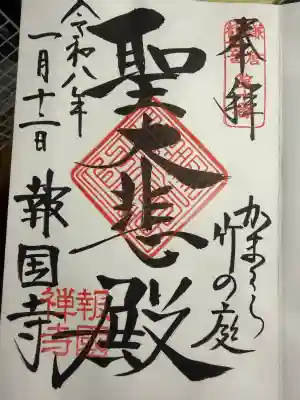 奉拝
かまくら
竹の庭
聖大悲殿
令和八年
一月十二日
報国寺
報國
禅寺